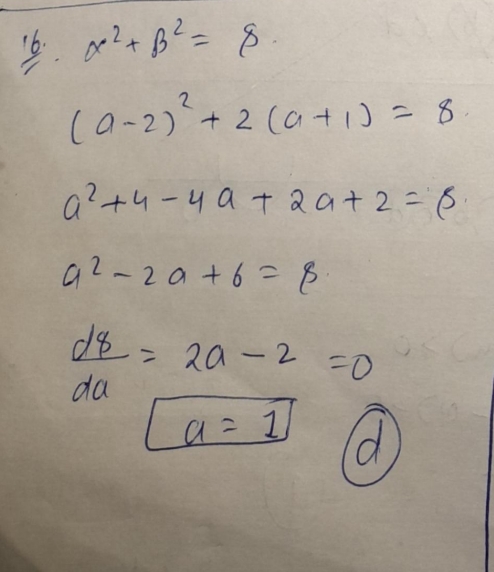 16. α² + β² = 8.
(a-2)² + 2(a+1) = 8.
a² + 4 - 4a + 2a + 2 = 8.
a² - 2a + 6 = 8.
d8/da = 2a - 2 = 0
a = 1
d